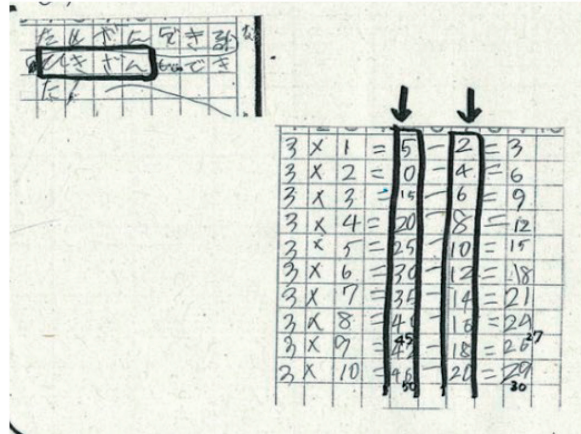 たしざんできる
ひきざんもでき
た。
3 × 1 = 5 - 2 = 3
3 × 2 = 0 - 4 = 6
3 × 3 = 15 - 6 = 9
3 × 4 = 20 - 8 = 12
3 × 5 = 25 - 10 = 15
3 × 6 = 30 - 12 = 18
3 × 7 = 35 - 14 = 21
3 × 8 = 4 - 16 = 24
3 × 9 = 45 - 18 = 26 27
3 × 10 = 46 50 - 20 = 29 30